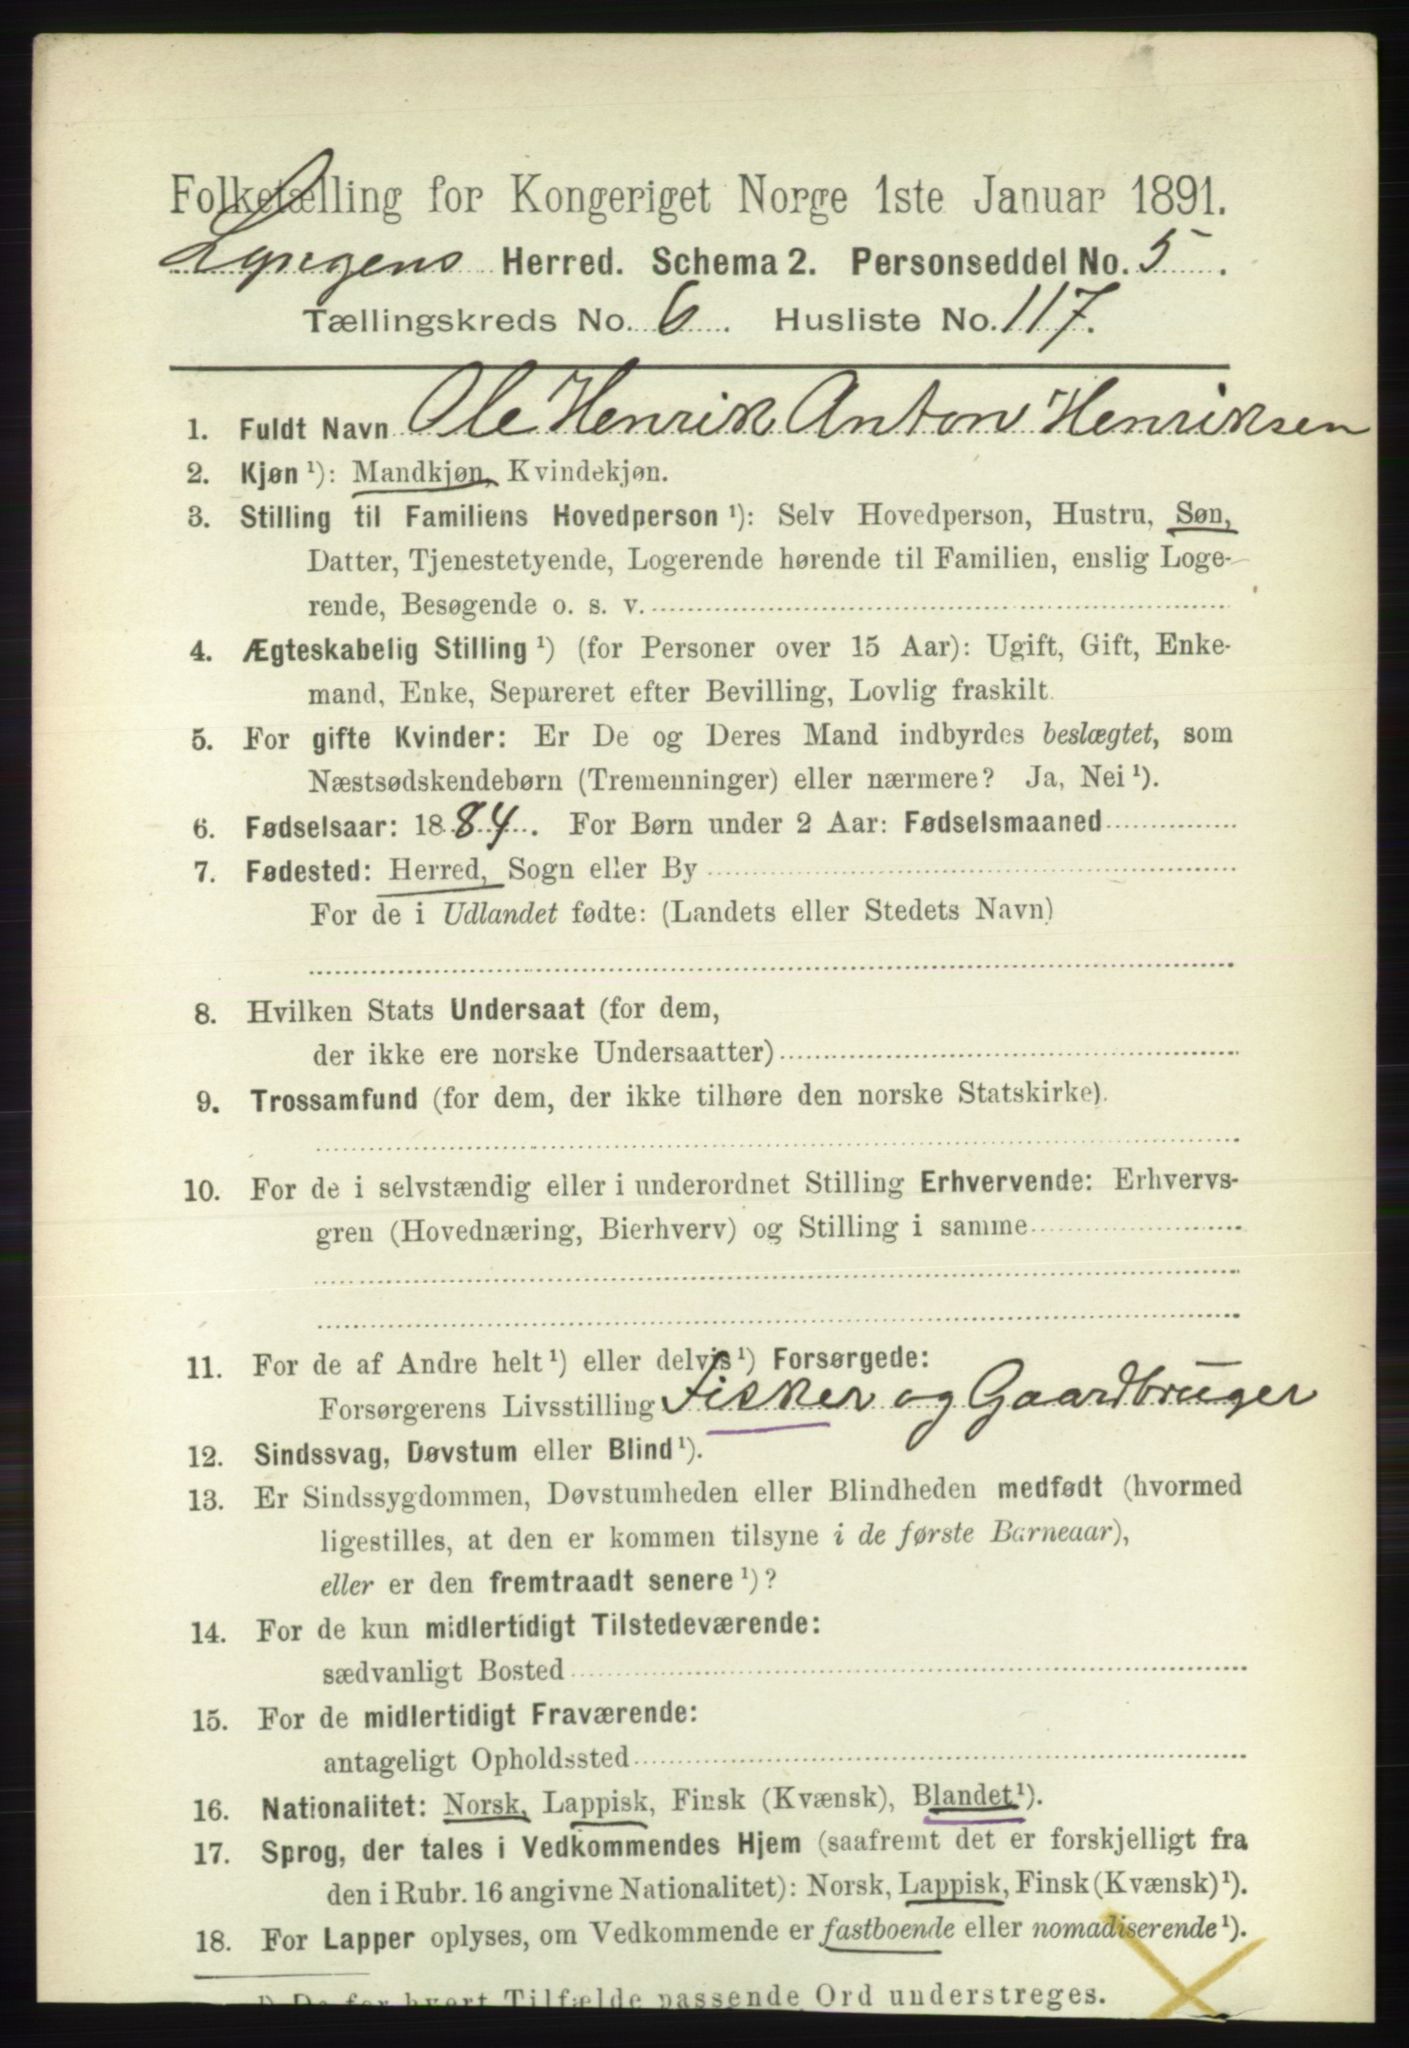 Folketælling for Kongeriget Norge 1ste Januar 1891.
Lyngens Herred. Schema 2. Personseddel No. 5.
Tællingskreds No. 6. Husliste No. 117.
1. Fuldt Navn Ole Henrik Anton Henriksen
2. Kjøn ¹): Mandkjøn, Kvindekjøn.
3. Stilling til Familiens Hovedperson ¹): Selv Hovedperson, Hustru, Søn,
Datter, Tjenestetyende, Logerende hørende til Familien, enslig Loge-
rende, Besøgende o. s. v.
4. Ægteskabelig Stilling ¹) (for Personer over 15 Aar): Ugift, Gift, Enke-
mand, Enke, Separeret efter Bevilling, Lovlig fraskilt.
5. For gifte Kvinder: Er De og Deres Mand indbyrdes beslægtet, som
Næstsødskendebørn (Tremenninger) eller nærmere? Ja, Nei ¹).
6. Fødselsaar: 1884. For Børn under 2 Aar: Fødselsmaaned
7. Fødested: Herred, Sogn eller By
For de i Udlandet fødte: (Landets eller Stedets Navn)
8. Hvilken Stats Undersaat (for dem,
der ikke ere norske Undersaatter)
9. Trossamfund (for dem, der ikke tilhøre den norske Statskirke).
10. For de i selvstændig eller i underordnet Stilling Erhvervende: Erhvervs-
gren (Hovednæring, Bierhverv) og Stilling i samme
11. For de af Andre helt ¹) eller delvis ¹) Forsørgede:
Forsørgerens Livsstilling Fisker og Gaardbruger
12. Sindssvag, Døvstum eller Blind ¹).
13. Er Sindssygdommen, Døvstumheden eller Blindheden medfødt (hvormed
ligestilles, at den er kommen tilsyne i de første Barneaar),
eller er den fremtraadt senere ¹)?
14. For de kun midlertidigt Tilstedeværende:
sædvanligt Bosted
15. For de midlertidigt Fraværende:
antageligt Opholdssted
16. Nationalitet: Norsk, Lappisk, Finsk (Kvænsk), Blandet ¹).
17. Sprog, der tales i Vedkommendes Hjem (saafremt det er forskjelligt fra
den i Rubr. 16 angivne Nationalitet): Norsk, Lappisk, Finsk (Kvænsk) ¹).
18. For Lapper oplyses, om Vedkommende er fastboende eller nomadiserende ¹).
¹) De for hvert Tilfælde passende Ord understreges.